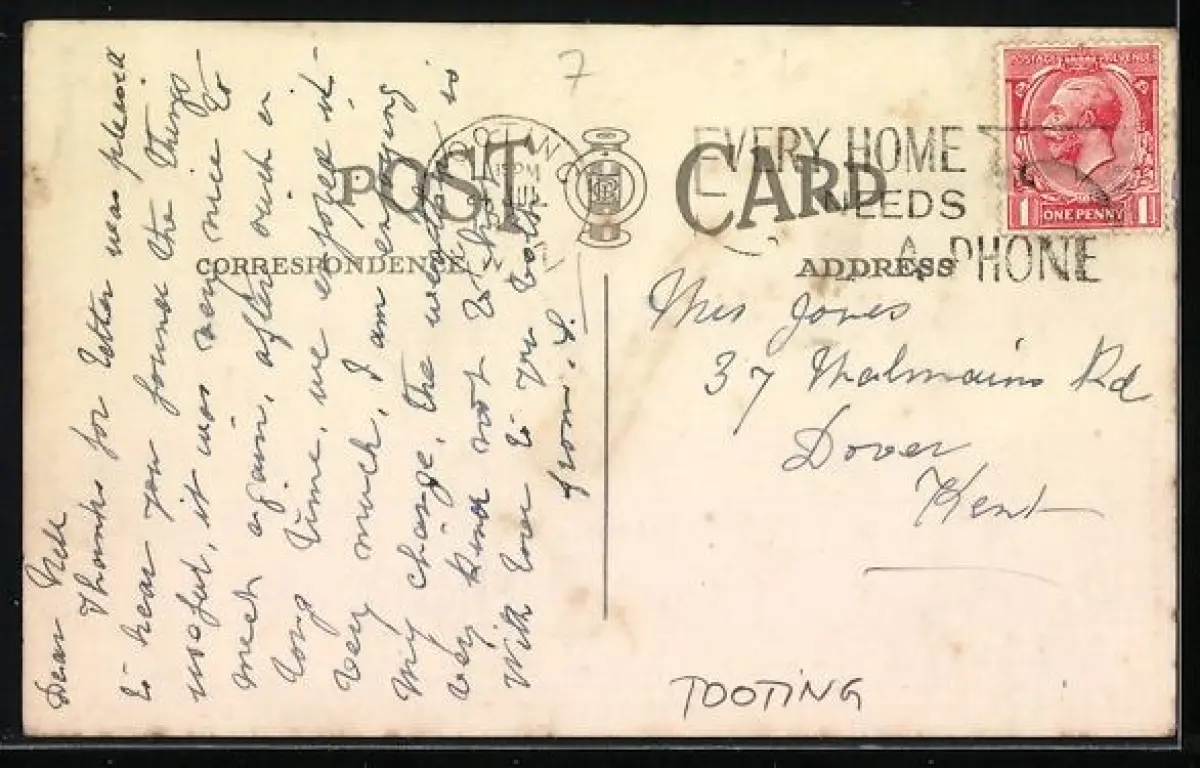 7
POST CARD
CORRESPONDENCE
ADDRESS
EVERY HOME
NEEDS
A PHONE
POSTAGE REVENUE
1 ONE PENNY 1
Dear Nell
Thanks for letter was pleased
to hear you found the things
useful, it was very nice to
meet again, after such a
long time, we enjoyed it
very much, I am enjoying
my change, the weather is
very kind not to hot
With love to you both
from. S.
Mrs Jones
37 Malmains Rd
Dover
Kent
TOOTING